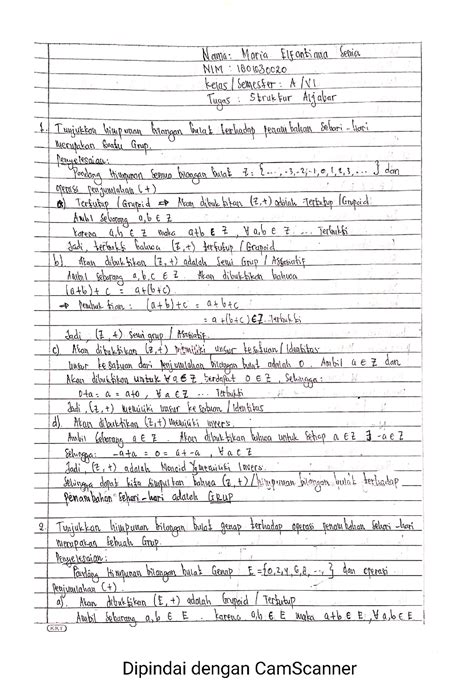 Nama : Maria Elfantiana Senia
NIM : 1801030020
Kelas / Semester : A / VI
Tugas : Struktur Aljabar
1. Tunjukkan himpunan bilangan bulat terhadap penambahan sehari-hari
merupakan suatu Grup.
Penyelesaian :
Pandang himpunan semua bilangan bulat Z : {..., -3, -2, -1, 0, 1, 2, 3, ... } dan
operasi penjumlahan (+)
a) Tertutup / Grupoid ⇒ Akan dibuktikan (Z,+) adalah Tertutup / Grupoid
Ambil sebarang a,b ∈ Z
Karena a,b ∈ Z maka a+b ∈ Z, ∀ a,b ∈ Z ... Terbukti
Jadi, terbukti bahwa (Z,+) tertutup / Grupoid
b). Akan dibuktikan (Z,+) adalah Semi Grup / Assosiatif
Ambil sebarang a, b, c ∈ Z. Akan dibuktikan bahwa
(a+b) + c = a+(b+c)
→ Pembuktian : (a+b)+c = a+b+c
= a+(b+c) ∈ Z. Terbukti
Jadi, (Z,+) semi grup / Assosiatif.
c) Akan dibuktikan (Z,+) memiliki unsur kesatuan / Identitas
Unsur kesatuan dari penjumlahan bilangan bulat adalah 0. Ambil a ∈ Z dan
Akan dibuktikan untuk ∀ a ∈ Z terdapat 0 ∈ Z, sehingga :
0+a = a = a+0, ∀ a ∈ Z ... Terbukti
Jadi, (Z,+) memiliki unsur kesatuan / Identitas
d). Akan dibuktikan (Z,+) memiliki invers.
Ambil sebarang a ∈ Z. Akan dibuktikan bahwa untuk setiap a ∈ Z ∃ -a ∈ Z
Sehingga : -a+a = 0 = a+-a, ∀ a ∈ Z
Jadi, (Z,+) adalah Monoid memiliki Invers.
Sehingga dapat kita simpulkan bahwa (Z,+) / himpunan bilangan bulat terhadap
Penambahan sehari-hari adalah GRUP
2. Tunjukkan himpunan bilangan bulat genap terhadap operasi penambahan sehari-hari
merupakan sebuah Grup.
Penyelesaian :
Pandang himpunan bilangan bulat Genap E = {0, 2, 4, 6, 8, ... } dan operasi
Penjumlahan (+).
a). Akan dibuktikan (E,+) adalah Grupoid / Tertutup
Ambil sebarang a, b ∈ E. Karena a,b ∈ E maka a+b ∈ E, ∀ a,b ∈ E
KKY
Dipindai dengan CamScanner